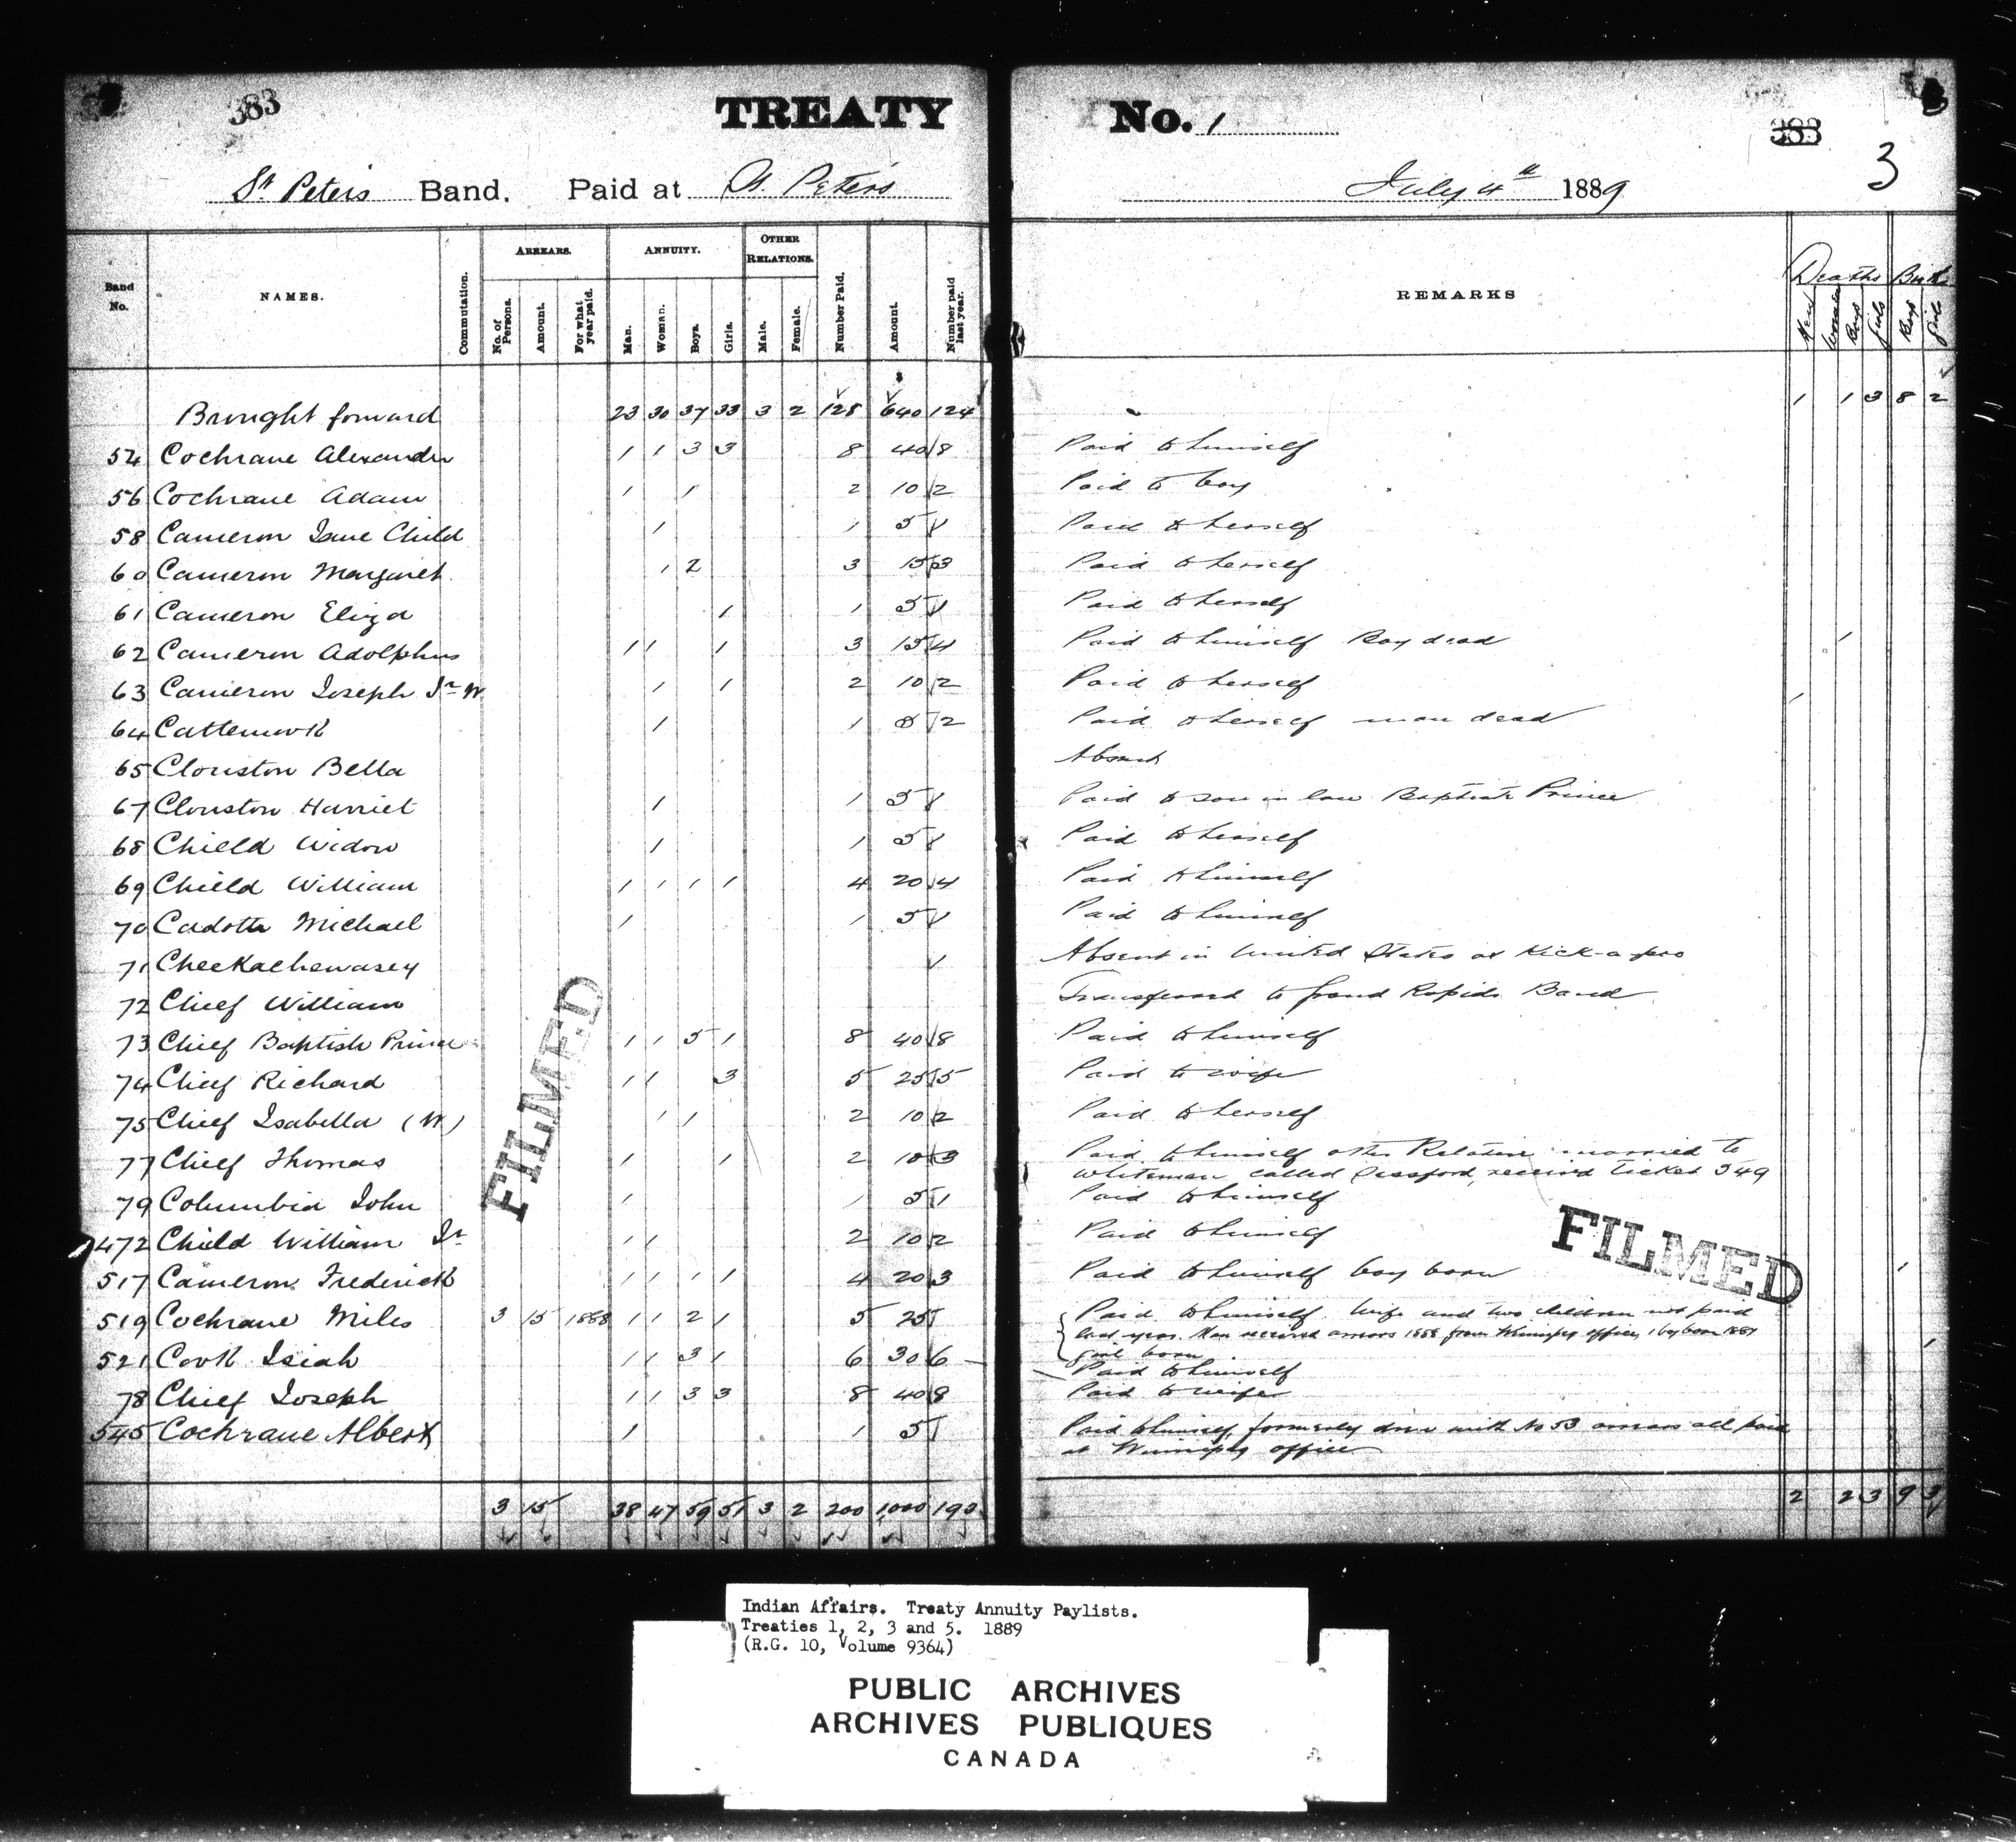 383
TREATY No. 1
383
3
St Peter's Band. Paid at St. Peter's July 4th 1889
Band No. NAMES. Commutation. ARREARS. No. of Persons. Amount. For what year paid. ANNUITY. Man. Woman. Boys. Girls. OTHER RELATIONS. Male. Female. Number Paid. Amount. Number paid last year. REMARKS Deaths Men Women Boys Girls Births Boys Girls
$
Brought forward 23 30 37 33 3 2 128 640 124 1 1 3 8 2
54 Cochrane Alexander 1 1 3 3 8 40 8 Paid to himself
56 Cochrane Adam 1 1 2 10 2 Paid to boy
58 Cameron Jane Child 1 1 5 1 Paid to herself
60 Cameron Margaret 1 2 3 15 3 Paid to herself
61 Cameron Eliza 1 1 5 1 Paid to herself
62 Cameron Adolphus 1 1 1 3 15 4 Paid to himself Boy dead 1
63 Cameron Joseph Jr W. 1 1 2 10 2 Paid to herself
64 1 1 5 2 Paid to herself man dead 1
65 Clouston Bella Absent
67 Clouston Harriet 1 1 5 1 Paid to son in law Baptiste Prince
68 Chield Widow 1 1 5 1 Paid to herself
69 Chield William 1 1 1 1 4 20 4 Paid to himself
70 Cadotte Michael 1 1 5 1 Paid to himself
71 Cheekachewasey 1 Absent in United States at Kick-a-poo
72 Chief William Transferred to Grand Rapids Band
73 Chief Baptiste Prince 1 1 5 1 8 40 8 Paid to himself
74 Chief Richard 1 1 3 5 25 5 Paid to wife
75 Chief Isabella (W) 1 1 2 10 2 Paid to herself
77 Chief Thomas 1 1 2 10 3 Paid to himself other Relation married to
Whiteman called received ticket 549
79 Columbia John 1 1 5 1 Paid to himself
472 Child William Jr 1 1 2 10 2 Paid to himself
517 Cameron Frederick 1 1 1 1 4 20 3 Paid to himself boy born 1
519 Cochrane Miles 3 15 1888 1 1 2 1 5 25 Paid to himself. Wife and two children not paid
last year. Man received arrears 1888 from Winnipeg office, 1 boy born 1887
girl born 1
521 Cook Isiah 1 1 3 1 6 30 6 Paid to himself
78 Chief Joseph 1 1 3 3 8 40 8 Paid to wife
545 Cochrane Albert 1 1 5 Paid to himself, formerly drew with No 53 arrears all paid
at Winnipeg office
3 15 38 47 59 51 3 2 200 1,000 190 2 2 3 9 3
FILMED
FILMED
Indian Affairs. Treaty Annuity Paylists.
Treaties 1, 2, 3 and 5. 1889
(R.G. 10, Volume 9364)
PUBLIC ARCHIVES
ARCHIVES PUBLIQUES
CANADA